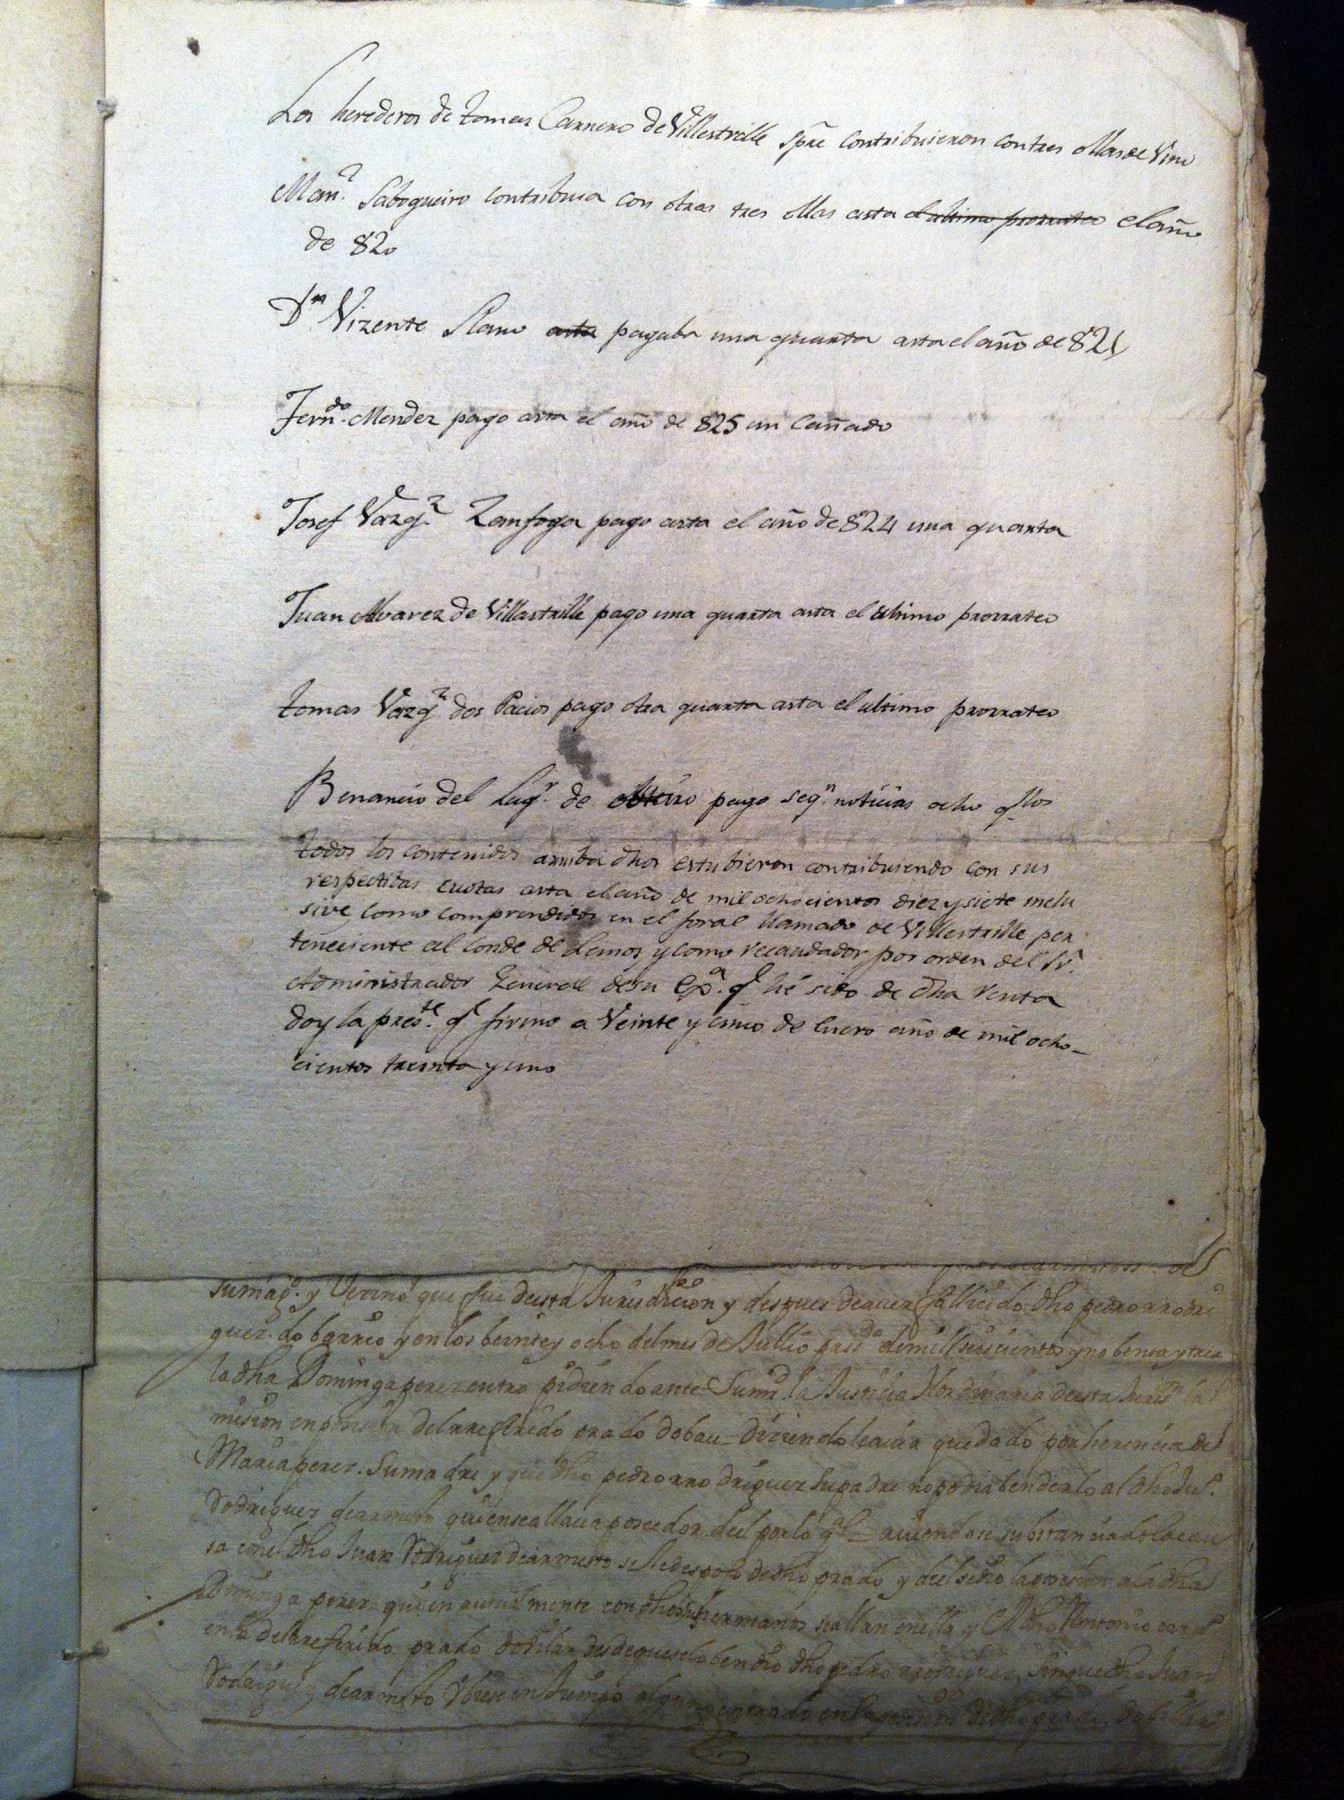 Los herederos de tomas Carnero de Villestrille spre contribuieron con tres ollas de Vino
Manl. Sabogueiro contribuia con otras tres ollas asta el ultimo prorrateo el año
de 820
Dn Vizente Llano asta pagaba una quarta asta el año de 821
Ferndo. Mendez pago asta el año de 825 un Cañado
Josef Vazqz. Zanfoga pago asta el año de 824 una quarta
Juan Alvarez de Villastrille pago una quarta asta el ultimo prorrateo
tomas Vazqz dos Pacios pago otra quarta asta el ultimo prorrateo
Benancio del Lugr. de Outeiro pago segn noticias ocho qllos
todos los contenidos arriba dhos estubieron contribuiendo con sus
respectibas cuotas asta el año de mil ochocientos diez y siete inclu
sive, como comprendidos en el foral llamado de Villestrille per
teneciente al Conde de Lemos, y como recaudador por orden del Sr.
Administrador General de su Exa. q he sido de dha renta
doy la preste. q firmo a Veinte y cinco de Enero año de mil ocho-
cientos treinta y uno
y Vecino que fue desta Jurisdicion y despues de aver fallecido dho pedro rrodri
guez do barrio y en los beinte y ocho del mes de Jullio passdo de mill seiscientos y nobenta y tres
la dha Dominga perez entro pidiendo ante Sumd la Justicia Hordinaria desta Juron la
mision en posesion del rreferido prado dobau - diciendo le avia quedado por herencia de
Maria perez. Su madre y que dho pedro rrodriguez su padre no podia benderlo al dho Jun.
Rodriguez de armesto quien se allava poseedor del por lo ql - aviendose substanciado la cau
sa con el dho Juan Rodriguez de armesto se le despojo de dho prado y del se dio la posesion a la dha
Dominga perez quien autualmente con dhos sus hermanos se allan en ella y
del rreferido prado desde que se lo bendio dho pedro rrodriguez, sin que dho Juan
Rodriguez de armesto